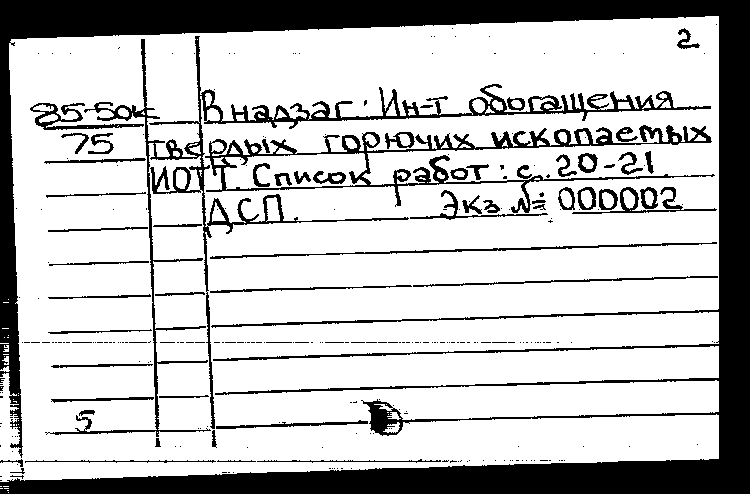 2
85-50к В надзаг: Ин-т обогащения
75 твердых горючих ископаемых
ИОТТ. Список работ: с. 20-21.
ДСП. Экз №: 000002
5